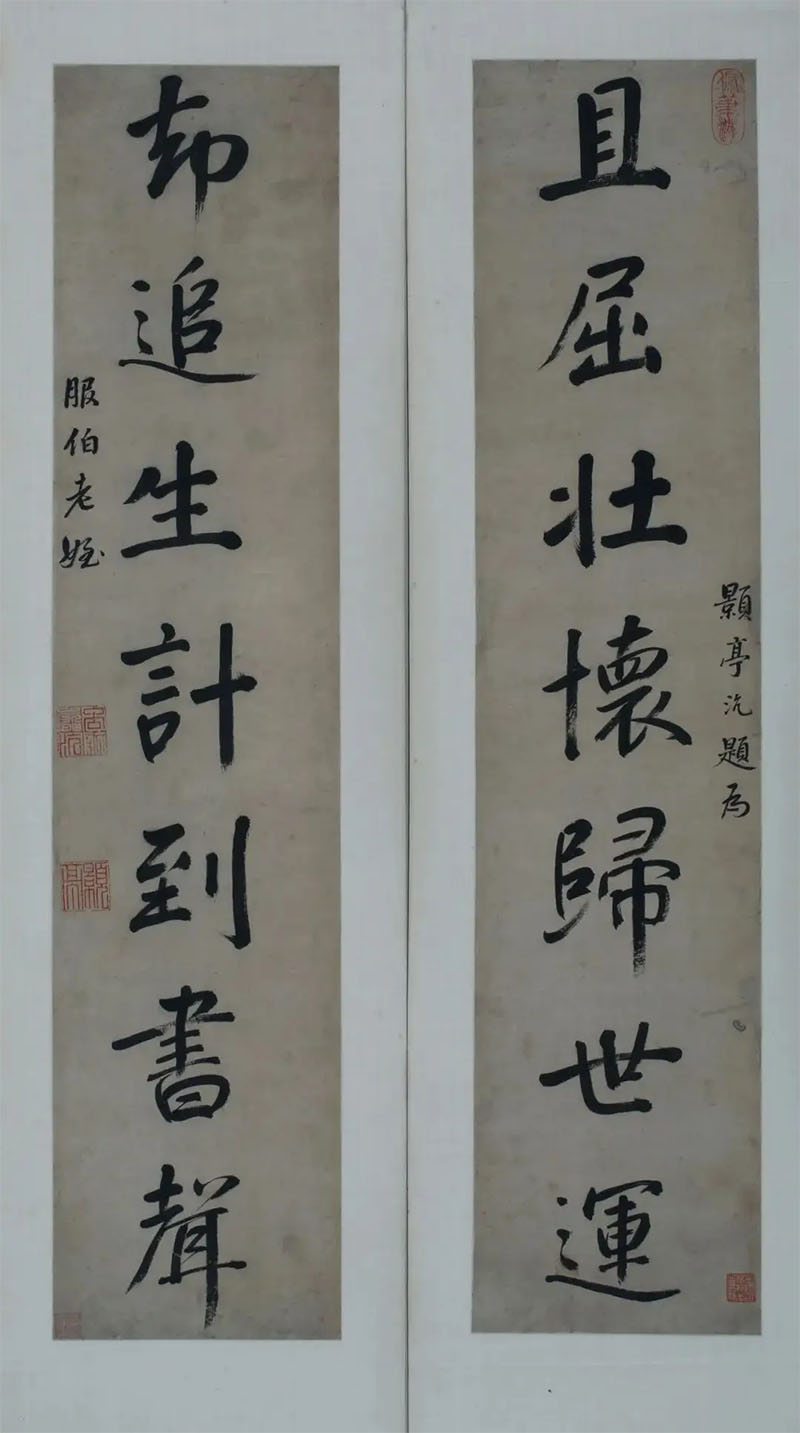 顥亭沆題為
且屈壯懷歸世運
却追生計到書聲
服伯老姪